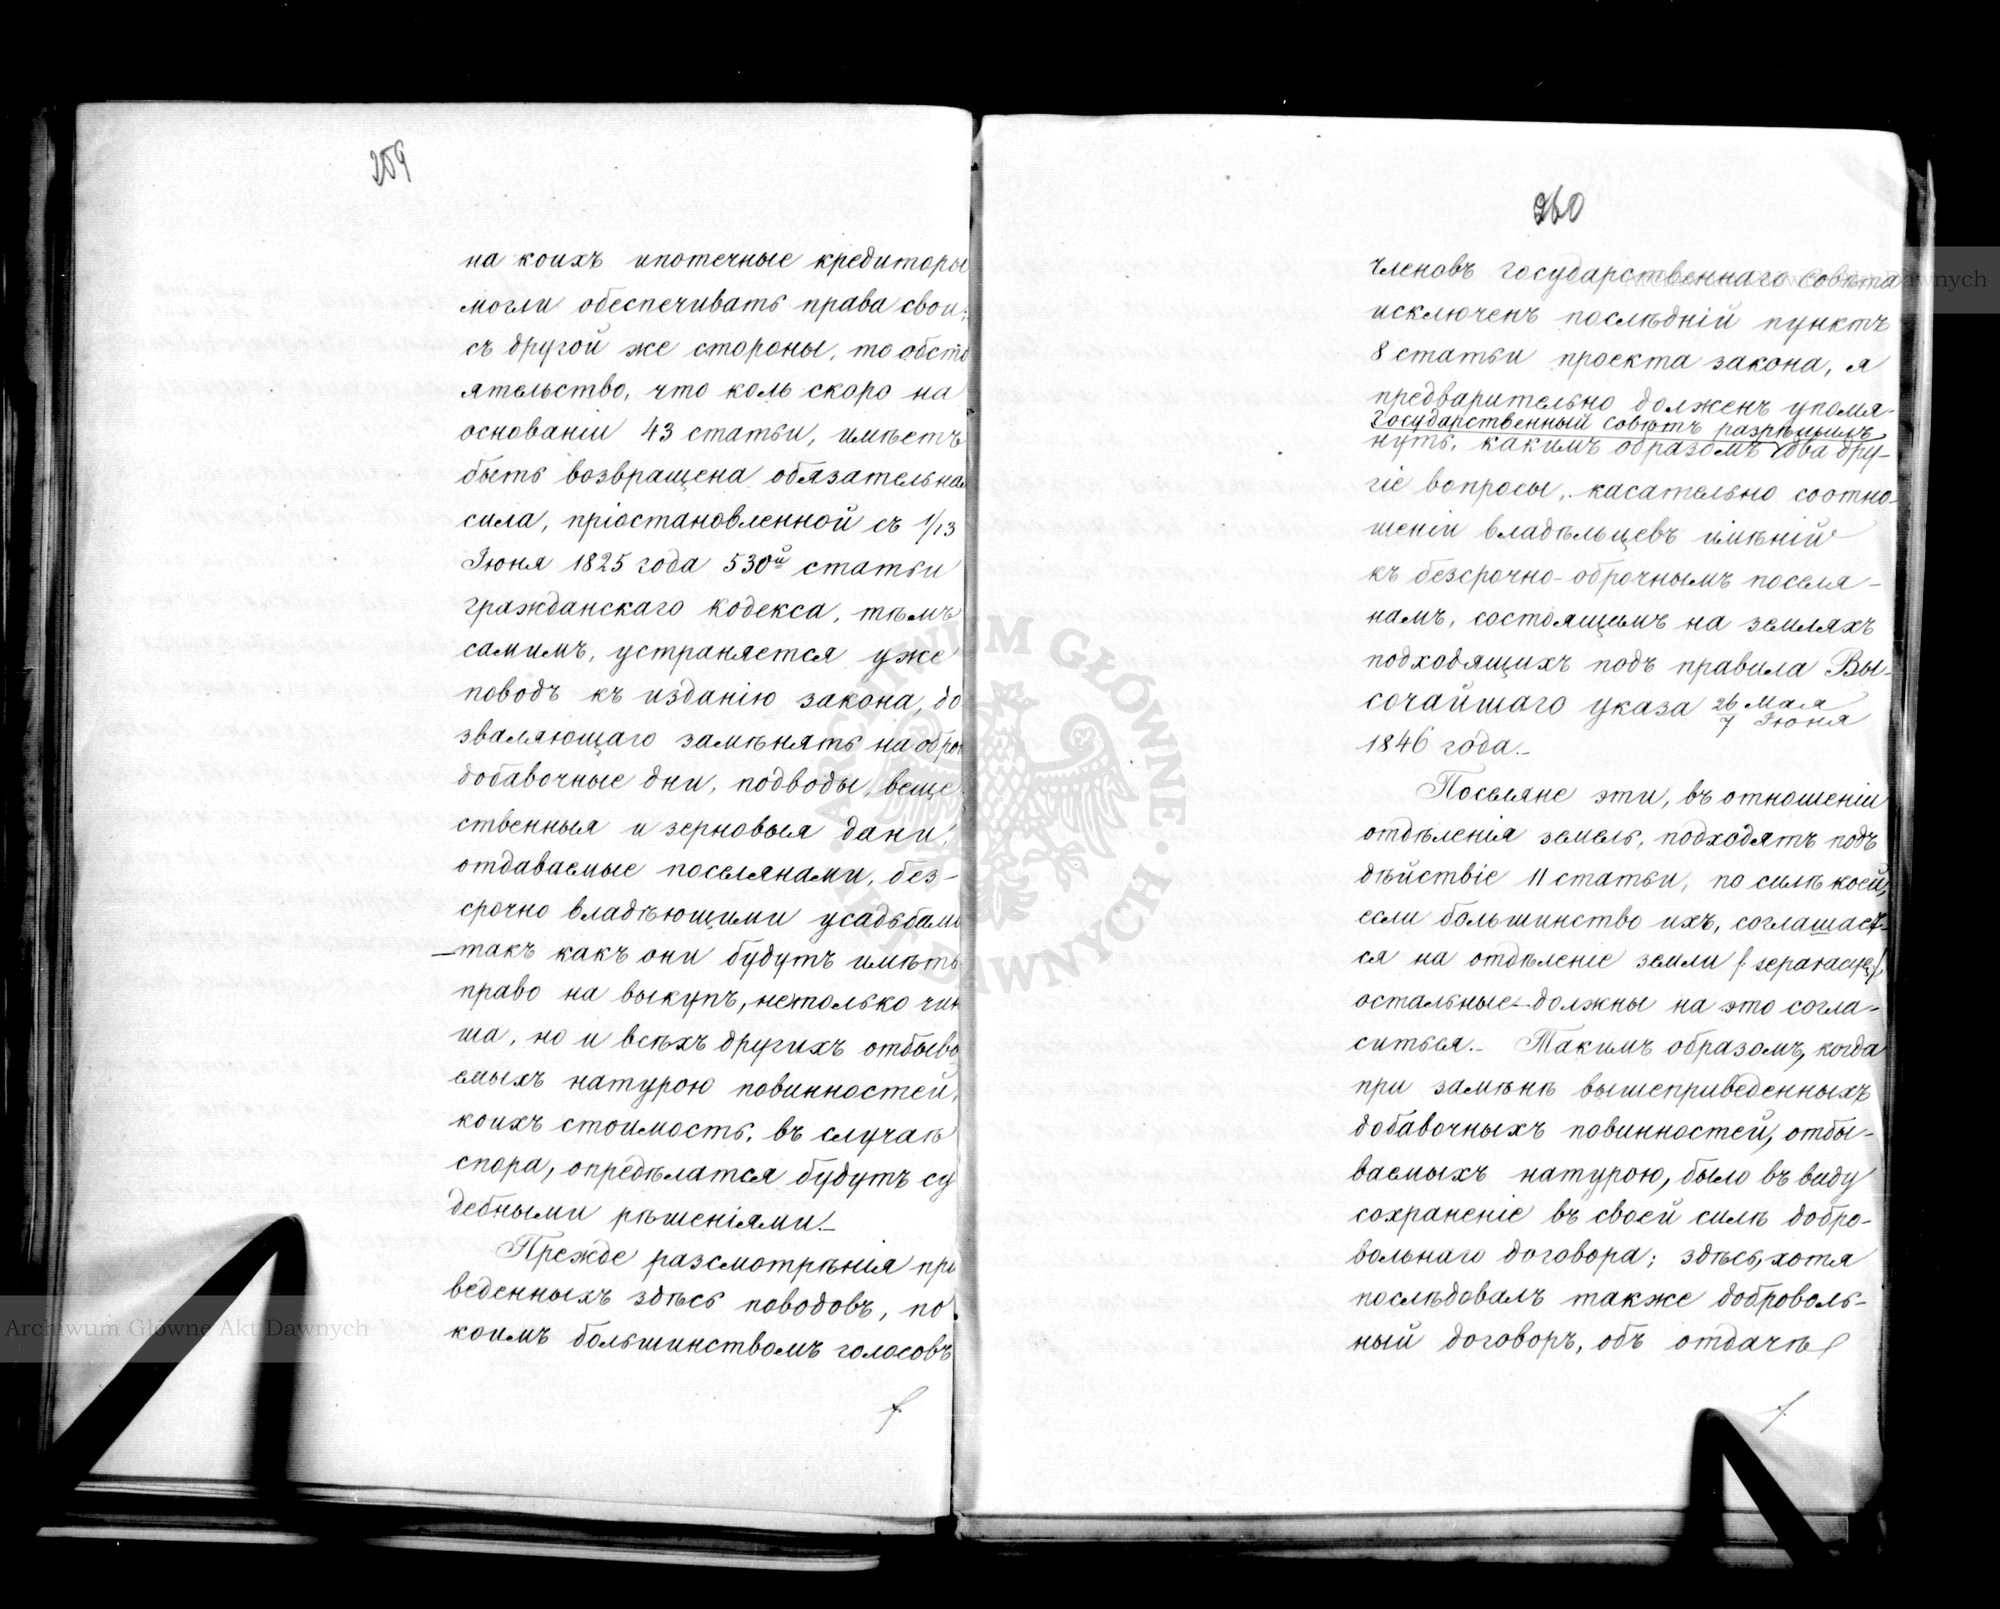 259
на коихъ ипотечные кредиторы
могли обеспечивать права свои;
съ другой же стороны, то обсто
ятельство, что коль скоро на
основаніи 43 статьи, имѣетъ
быть возвращена обязательная
сила, пріостановленной съ 1/13
Іюня 1825 года 530й статьи
гражданскаго кодекса, тѣмъ
самимъ, устраняется уже
поводъ къ изданію закона, до
зваляющаго замѣнять на оброк
добавочные дни, подводы, веще
ственныя и зерновыя дани,
отдаваемые поселянами, без-
срочно владѣющими усадьбами
—такъ какъ они будутъ имѣть
право на выкупъ, нетолько чин
ша, но и всѣхъ другихъ отбыва
емыхъ натурою повинностей,
коихъ стоимость, въ случаѣ
спора, опредѣлатся будутъ су
дебными рѣшеніями.—
Прежде разсмотрѣнія при
веденныхъ здѣсь поводовъ, по
коимъ большинствомъ голосовъ
260
членовъ государственнаго совѣта
исключенъ послѣдній пунктъ
8 статьи проекта закона, я
предварительно долженъ упомя-
Государственный совѣтъ разрѣшилъ
нуть, какимъ образомъ два дру-
гіе вопросы, касательно соотно-
шеніи владѣльцевъ имѣній
къ безсрочно-оброчнымъ поселя-
намъ, состоящимъ на земляхъ
подходящихъ подъ правила Вы-
сочайшаго указа 26 Мая / 7 Іюня
1846 года.—
Поселяне эти, въ отношеніи
отдѣленія земель, подходятъ подъ
дѣйствіе 11 статьи, по силѣ коей,
если большинство ихъ, соглашает-
ся на отдѣленіе земли /: separacye:/
остальные должны на это согла-
ситься.— Такимъ образомъ, когда
при замѣнѣ вышеприведенныхъ
добавочныхъ повинностей, отбы-
ваемыхъ натурою, было въ виду
сохраненіе въ своей силѣ добро-
вольнаго договора; здѣсь, хотя
послѣдовалъ также доброволь-
ный договоръ, объ отдачѣ
ARCHIWUM GŁÓWNE AKT DAWNYCH
Archiwum Główne Akt Dawnych